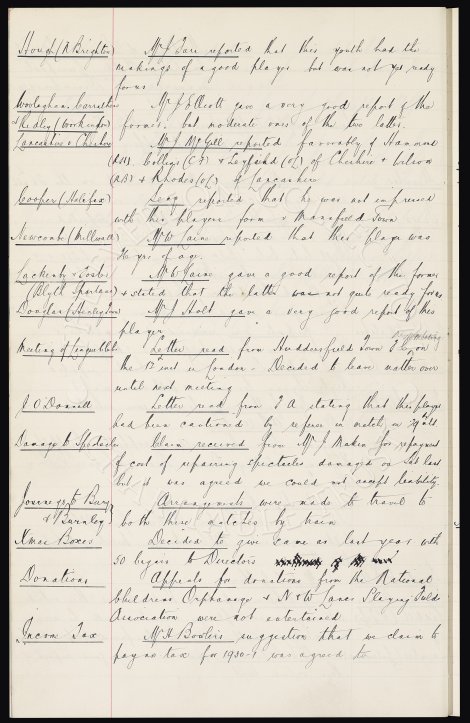 Hough (R Brighton) Mr J Tarr reported that this youth had the
makings of a good player but was not yet ready
form
Woolaghan. Carruthers Mr J Elliott gave a very good report of the
& Hedley (Workington) former, but moderate ones of the two latter.
Lancashire v Cheshire Mr J McGill reported favourably of Hammond
(RH) Colleys (CF) & (OL) of Cheshire & Wilson
(RB) & Rhodes (OL) of Lancashire
Cooper (Halifax) Leng reported that he was not impressed
with this players form v Mansfield Town
Newcomb (Millwall) Mr W Caine reported that this player was
26 yrs of age.
Lackenby & Foster Mr W Caine gave a good report of the former
(Blyth Spartans) & stated that the latter was not quite ready form
Douglas (Headington) Mr J Holt gave a very good report of this
player
Meeting of League Clubs Letter read from Huddersfield Town F C, on
the 12 inst in London. Decided to leave matter over
until next meeting
J O'Donnell Letter read from F A stating that this player
had been cautioned by referee in match on 29th ult
Damage to Spectacles Claim received from Mr J Makin for repayment
of cost of repairing spectacles damaged on Sat last
but it was agreed we could not accept liability.
Journeys to Bury Arrangements were made to travel to
& Burnley both these matches by train
Xmas Boxes Decided to give same as last year with
50 Cigars to Directors
Donations Appeals for donations from the National
Childrens Orphanage & N & W Lancs Playing Fields
Association were not entertained
Income Tax Mr H Bowler's suggestion that we claim to
pay no tax for 1930-1 was agreed to